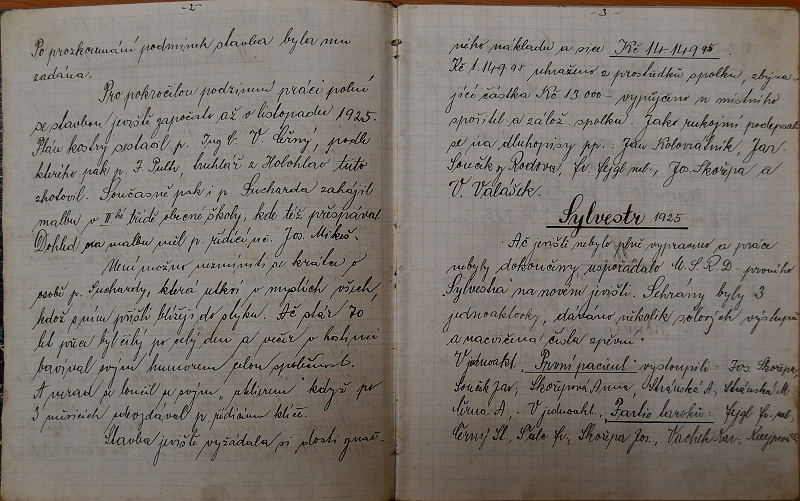 -2-
Po prozkoumání podmínek stavba byla mu
zadána.
Pro pokročilou podzimní práci polní
se stavbou jeviště započato až v listopadu 1925.
Plán kostry sestavil p. Ing C. V. Černý, podle
kterého pak p. F. Pultr, truhlář z Holohlav tuto
zhotovil. Současně pak i p. Sucharda zahájil
malbu v II hé třídě obecné školy, kde též přespával
Dohled na malbu měl p. řídící uč. Jos. Mikeš.
Není možno nezmíniti se krátce o
osobě p. Suchardy, která utkví v myslích všech,
kdož s ním přišli blížeji do styku. Ač stár 70
let přece byl čilý po celý den a večer v hostinci
bavíval svým humorem celou společnost.
A nerad se loučil se svým "atelierem" když po
3 měsících odevzdával p. řídícímu klíče.
Stavba jeviště vyžádala si dosti znač-
-3-
ného nákladu a sice Kč 14.149 95.
Kč 1.149 95 uhraženo z prostředků spolku, zbýva-
jící částka Kč 13.000- vypůjčeno u místního
spořitel. a zálož. spolku. Jako rukojmí podepsali
se na dlužopisy pp.: Jan Kolovrátník, Jar.
Souček z Rodova, Fr. Fejgl ml., Jos. Skořepa a
V. Valášek.
Sylvestr 1925
Ač jeviště nebylo plně vypraveno a práce
nebyly dokončeny uspořádalo M.S.R.D. prvního
"Sylvestra" na novém jevišti. Sehrány byly 3
jednoaktovky, dáváno několik sólových výstupů
a nacvičená čísla zpěvní.
V jednoakt. "První pacient" vystoupili: Jos. Skořepa,
Souček Jar, Skořepová Anna, Stránská A, Stránská M.
Černá A., V jednoakt. "Partie taroků": Fejgl Fr. ml,
Černý St., Fr, Skořepa Jos., Vachek Kar.